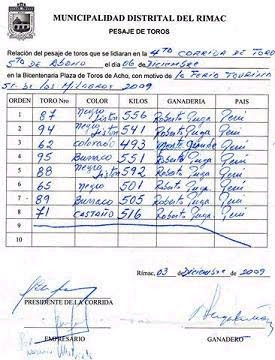 MUNICIPALIDAD DISTRITAL DEL RIMAC
PESAJE DE TOROS
Relación del pesaje de toros que se lidiaran en la 4TA CORRIDA DE TORO
5TO DE ABONO el día 06 diciembre
en la Bicentenaria Plaza de Toros de Acho, con motivo de la FERIA TOURINA
Sr de los Milagros 2009
ORDEN TORO COLOR KILOS GANADERIA PAIS
1 87 Negro liston 556 Roberto Puga Perú
2 94 Negro liston 541 Roberto Puga Perú
3 62 colorado 493 Monte Grande Perú
4 95 Burraco 551 Roberto Puga Perú
5 88 Negro liston 592 Roberto Puga Perú
6 65 Negro 501 Roberto Puga Perú
7 89 Burraco 505 Roberto Puga Perú
8 71 CASTAÑO 516 Roberto Puga Perú
9
10
Rímac, 03 diciembre de 2009
PRESIDENTE DE LA CORRIDA
EMPRESARIO GANADERO